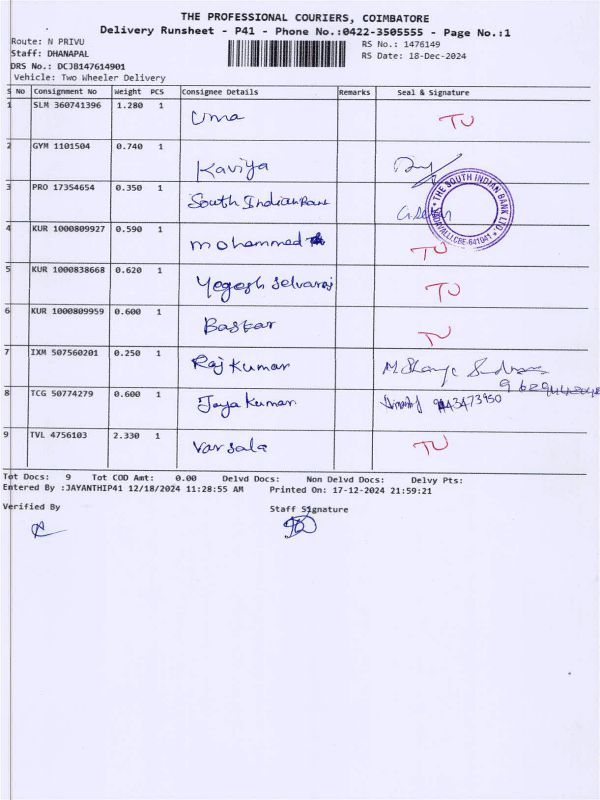 THE PROFESSIONAL COURIERS, COIMBATORE
Delivery Runsheet - P41 - Phone No.:0422-3505555 - Page No.:1
Route: N PRIVU RS No.: 1476149
Staff: DHANAPAL RS Date: 18-Dec-2024
DRS No.: DCJB147614901
Vehicle: Two Wheeler Delivery
S No Consignment No Weight PCS Consignee Details Remarks Seal & Signature
1 SLM 360741396 1.280 1 Uma TU
2 GYM 1101504 0.740 1 Kaviya
3 PRO 17354654 0.350 1 South Indian Bank
THE SOUTH INDIAN BANK LTD. CBE-641041
4 KUR 1000809927 0.590 1 mohammed TU
5 KUR 1000838668 0.620 1 Yogesh Selvaraj TU
6 KUR 1000809959 0.600 1 Baskar TU
7 IXM 507560201 0.250 1 Rajkumar
8 TCG 50774279 0.600 1 Jaya Kumar 9443473950
9 TVL 4756103 2.330 1 Varsala TU
Tot Docs: 9 Tot COD Amt: 0.00 Delvd Docs: Non Delvd Docs: Delvy Pts:
Entered By :JAYANTHIP41 12/18/2024 11:28:55 AM Printed On: 17-12-2024 21:59:21
Verified By Staff Signature